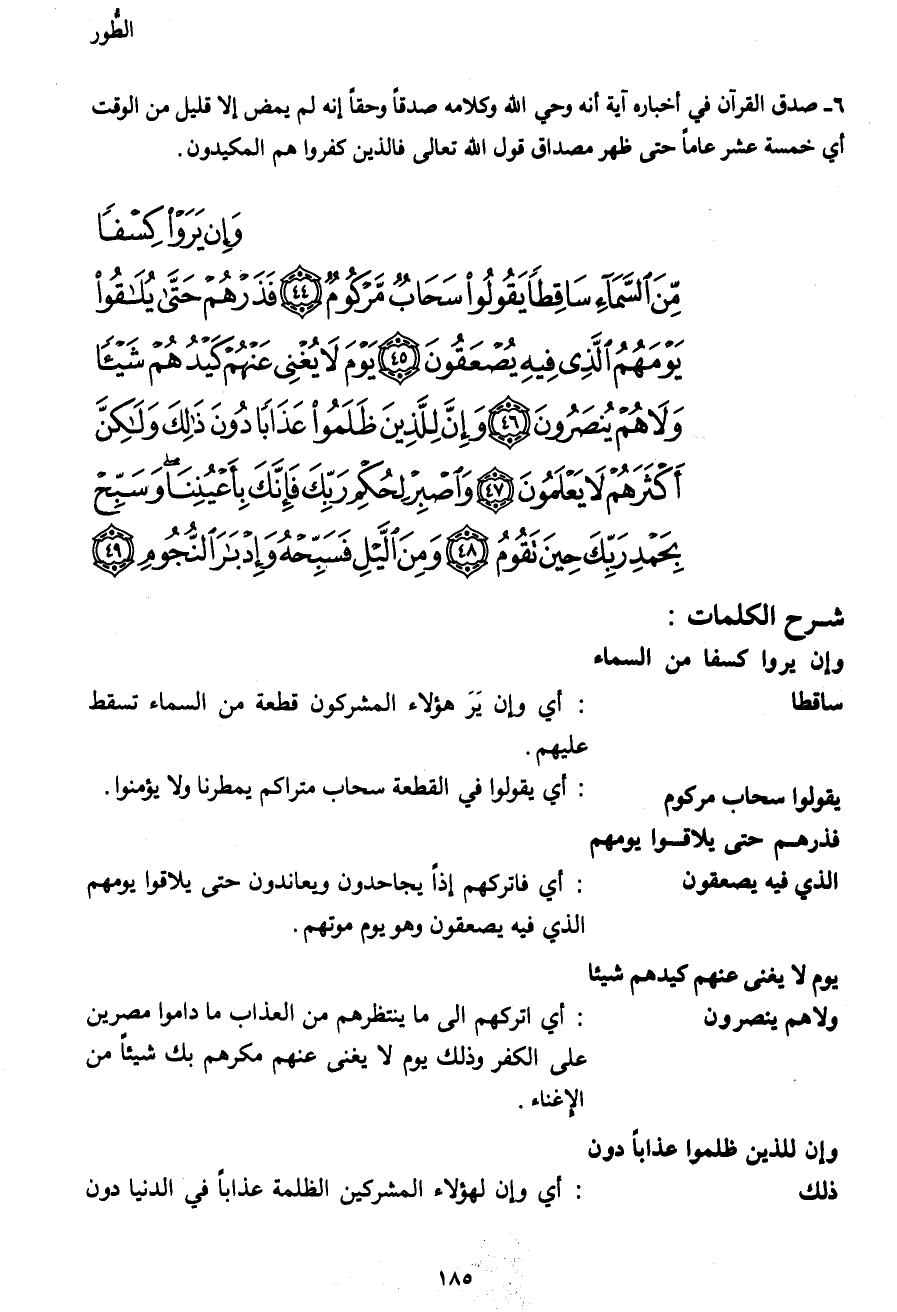 الطُّور
٦ـ صدق القرآن في أخباره آية أنه وحي الله وكلامه صدقاً وحقاً إنه لم يمض إلا قليل من الوقت
أي خمسة عشر عاماً حتى ظهر مصداق قول الله تعالى فالذين كفروا هم المكيدون .
وَإِن يَرَوْا۟ كِسْفًا
مِّنَ ٱلسَّمَآءِ سَاقِطًا يَقُولُوا۟ سَحَابٌ مَّرْكُومٌ ٤٤ فَذَرْهُمْ حَتَّىٰ يُلَٰقُوا۟
يَوْمَهُمُ ٱلَّذِى فِيهِ يُصْعَقُونَ ٤٥ يَوْمَ لَا يُغْنِى عَنْهُمْ كَيْدُهُمْ شَيْـًٔا
وَلَا هُمْ يُنصَرُونَ ٤٦ وَإِنَّ لِلَّذِينَ ظَلَمُوا۟ عَذَابًا دُونَ ذَٰلِكَ وَلَٰكِنَّ
أَكْثَرَهُمْ لَا يَعْلَمُونَ ٤٧ وَٱصْبِرْ لِحُكْمِ رَبِّكَ فَإِنَّكَ بِأَعْيُنِنَا ۖ وَسَبِّحْ
بِحَمْدِ رَبِّكَ حِينَ تَقُومُ ٤٨ وَمِنَ ٱلَّيْلِ فَسَبِّحْهُ وَإِدْبَٰرَ ٱلنُّجُومِ ٤٩
شـرح الكلمات :
وإن يروا كسفا من السماء
ساقطا : أي وإن يَرَ هؤلاء المشركون قطعة من السماء تسقط
عليهم .
يقولوا سحاب مركوم : أي يقولوا في القطعة سحاب متراكم يمطرنا ولا يؤمنوا .
فذرهـم حتى يلاقـوا يومهم
الذي فيه يصعقون : أي فاتركهم إذاً يجاحدون ويعاندون حتى يلاقوا يومهم
الذي فيه يصعقون وهو يوم موتهم .
يوم لا يغنى عنهم كيدهم شيئا
ولاهم ينصرون : أي اتركهم الى ما ينتظرهم من العذاب ما داموا مصرين
على الكفر وذلك يوم لا يغنى عنهم مكرهم بك شيئاً من
الإغناء .
وإن للذين ظلموا عذاباً دون
ذلك : أي وإن لهؤلاء المشركين الظلمة عذاباً في الدنيا دون
١٨٥